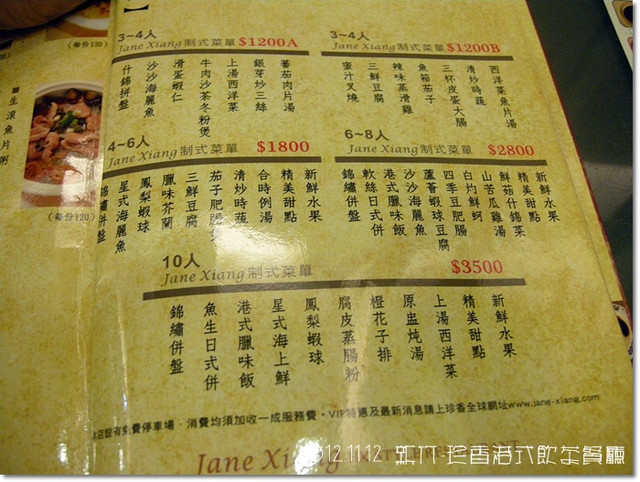 (每份130)
生滾魚片粥
(每份120)
3~4人
Jane Xiang制式菜單 $1200A
什錦拼盤
沙沙海麗魚
滑蛋蝦仁
牛肉沙茶冬粉煲
上湯西洋菜
銀芽炒三絲
蕃茄肉片湯
3~4人
Jane Xiang制式菜單 $1200B
蜜汁叉燒
三鮮豆腐
辣味蒸滑雞
魚箱茄子
三杯皮蛋大腸
清炒時蔬
西洋菜魚片湯
4~6人
Jane Xiang制式菜單 $1800
錦繡併盤
星式海麗魚
鳳梨蝦球
臘味芥蘭
三鮮豆腐
茄子肥腸
清炒時蔬
合時例湯
精美甜點
新鮮水果
6~8人
Jane Xiang制式菜單 $2800
錦繡併盤
軟絲日式併
港式臘味飯
沙沙海麗魚
蘆薈蝦球豆腐
四季豆肥腸
白灼鮮蚵
山苦瓜雞湯
鮮菇什錦菜
精美甜點
新鮮水果
10人
Jane Xiang制式菜單 $3500
錦繡併盤
魚生日式併
港式臘味飯
星式海上鮮
鳳梨蝦球
腐皮蒸腸粉
橙花子排
原盅炖湯
上湯西洋菜
精美甜點
新鮮水果
本店設有免費停車場．消費均須加收一成服務費．VIP特惠及最新消息請上珍香全球網址www.jane-xiang.com
Jane Xiang
2012.1112 新竹 珍香港式飲茶餐廳